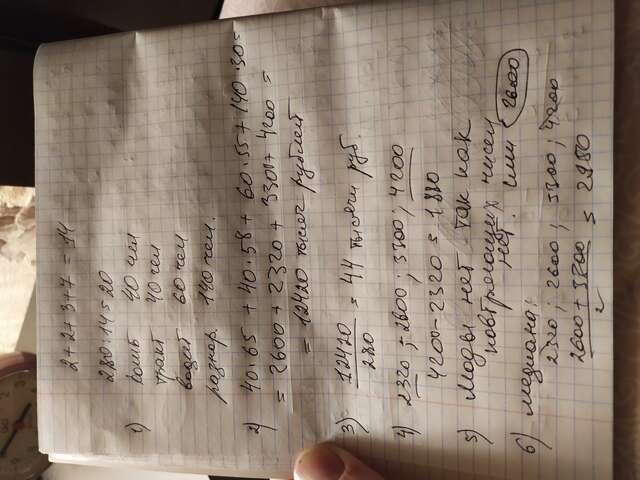 2+2+3+7 = 14
280:14=20
1) 40 чел
такт 40 чел
водит 60 чел
разнор. 140 чел.
2) 40·65 + 40·58 + 60·55+140·30=
= 2600+2320 + 3300+ 4200 =
= 12420 тысяч рублей
3) 12420
280
= 44 тысячи руб.
4) 2320; 2600; 3300; 4200
4200-2320 = 1880
5) Моды нет так как
повторяющихся чисел
нет. или 2600
6) медиана:
2320; 2600; 3300; 4200
2600 + 3300
2
= 2950